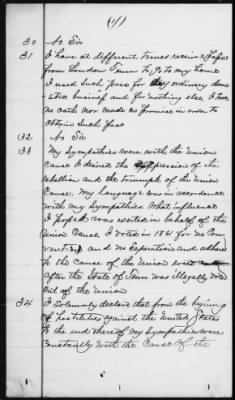 (4)
30 No Sir
31 I have at different times received passes
from Loudon Tenn to go to my home
I used such pass for my ordinary dome
stic business and for nothing else I took
no oath nor made no promise in order to
obtain such pass
32 No Sir
33 My sympathies were with the Union
cause I desired the suppression of the
rebellion and the triumph of the Union
Cause. My language was in accordance
with my sympathies. What influence
I possessed was exerted in behalf of the
Union Cause I voted in 1861 for no Con
vention and no Seperation and adhered
to the cause of the Union even
after the State of Tenn was illegally voted
out of the Union
34 I solemnly declare that from the begining
of hostilities against the United States
to the end thereof my sympathies were
constantly with the cause of the